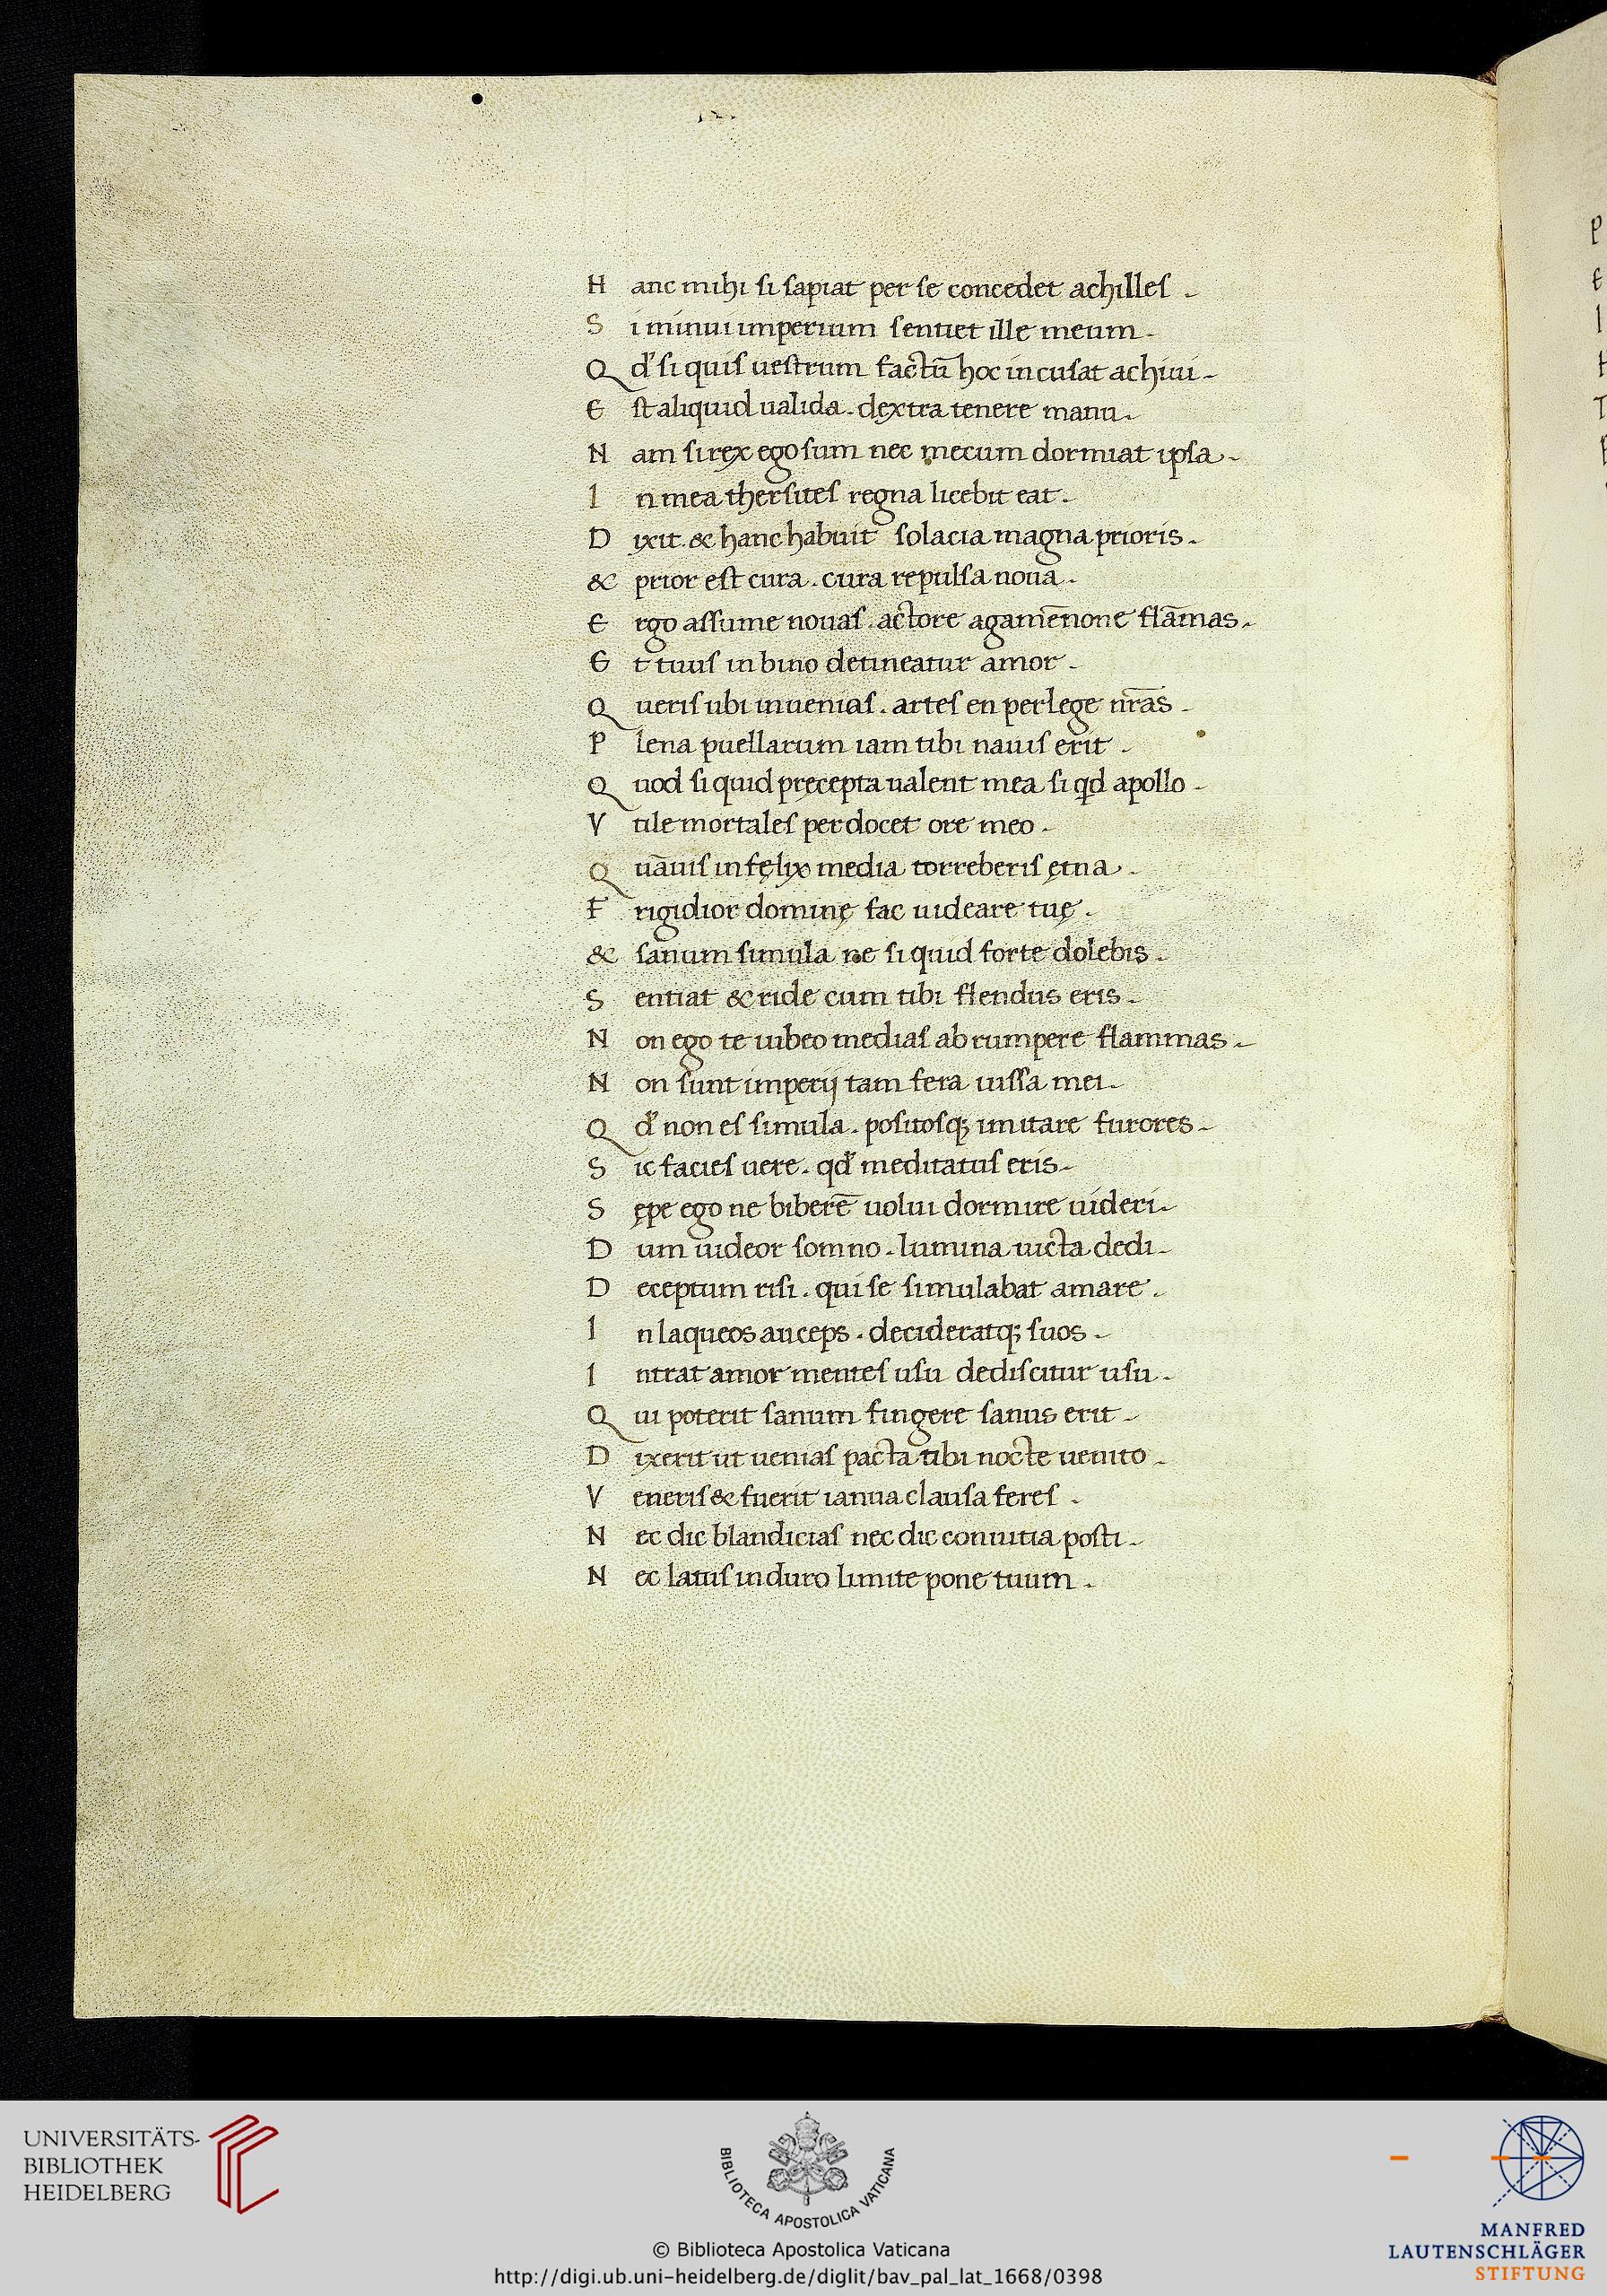 H anc mihi si sapiat per se concedet achilles .
S i minui imperium sentiet ille meum .
Q d' si quis uestrum factū hoc incusat achiui .
E st aliquid ualida . dextra tenere manu .
N am si rex ego sum nec mecum dormiat ipsa .
I n mea thersites regna licebit eat .
D ixit & hanc habuit solacia magna prioris .
& prior est cura . cura repulsa noua .
E rgo assume nouas . actore agamēnone flāmas .
E t tuus in biuio detineatur amor .
Q ueris ubi inuenias . artes en perlege nr̄as .
P lena puellarum iam tibi nauis erit .
Q uod si quid pręcepta ualent mea si qd apollo .
V tile mortales perdocet ore meo .
Q uāuis infęlix media torreberis ętna .
F rigidior dominę fac uideare tuę .
& sanum simula ne si quid forte dolebis .
S entiat & ride cum tibi flendus eris .
N on ego te iubeo medias abrumpere flammas .
N on sunt imperij tam fera iussa mei .
Q d' non es simula . positosq; imitare furores .
S ic facies uere . qd' meditatus eris .
S ępe ego ne biberē uolui dormire uideri .
D um uideor somno . lumina uicta dedi .
D eceptum risi . qui se simulabat amare .
I n laqueos auceps . decideratq; suos .
I ntrat amor mentes usu dediscitur usu .
Q ui poterit sanum fingere sanus erit .
D ixerit ut uenias pacta tibi nocte uenito .
V eneris & fuerit ianua clausa feres .
N ec dic blandicias nec dic conuitia posti .
N ec latus in duro limite pone tuum .
UNIVERSITÄTS-
BIBLIOTHEK
HEIDELBERG
BIBLIOTECA APOSTOLICA VATICANA
© Biblioteca Apostolica Vaticana
http://digi.ub.uni-heidelberg.de/diglit/bav_pal_lat_1668/0398
MANFRED
LAUTENSCHLÄGER
STIFTUNG